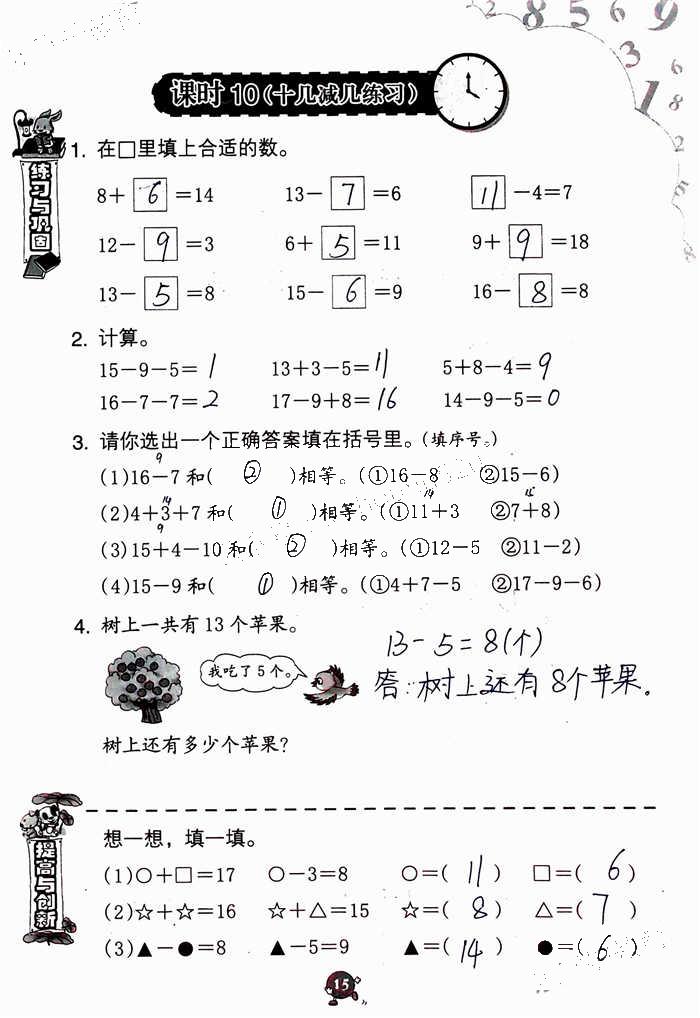 2 8 5 6 9
3 6
1 8
2
5
8
课时10(十几减几练习)
练习与巩固
1. 在□里填上合适的数。
8+6=14 13-7=6 11-4=7
12-9=3 6+5=11 9+9=18
13-5=8 15-6=9 16-8=8
2. 计算。
15-9-5=1 13+3-5=11 5+8-4=9
16-7-7=2 17-9+8=16 14-9-5=0
3. 请你选出一个正确答案填在括号里。(填序号。)
9
(1)16-7和( ② )相等。(①16-8 ②15-6)
14 14 15
(2)4+3+7和( ① )相等。(①11+3 ②7+8)
9
(3)15+4-10和( ② )相等。(①12-5 ②11-2)
(4)15-9和( ① )相等。(①4+7-5 ②17-9-6)
4. 树上一共有13个苹果。
我吃了5个。
13-5=8(个)
答:树上还有8个苹果。
树上还有多少个苹果?
提高与创新
想一想,填一填。
(1)○+□=17 ○-3=8 ○=( 11 ) □=( 6 )
(2)☆+☆=16 ☆+△=15 ☆=( 8 ) △=( 7 )
(3)▲-●=8 ▲-5=9 ▲=( 14 ) ●=( 6 )
15